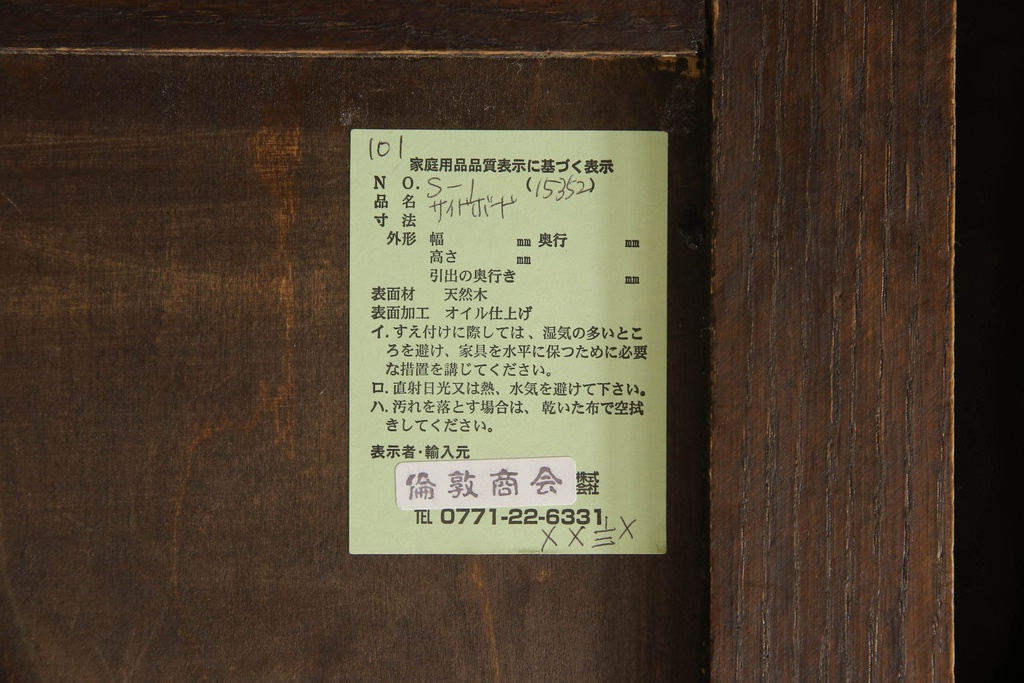 101
家庭用品品質表示に基づく表示
NO. S-1 (15352)
品名 サイドボード
寸法
外形 幅 mm 奥行 mm
高さ mm
引出の奥行き mm
表面材 天然木
表面加工 オイル仕上げ
イ. すえ付けに際しては、湿気の多いとこ
ろを避け、家具を水平に保つために必要
な措置を講じてください。
ロ. 直射日光又は熱、水気を避けて下さい。
ハ. 汚れを落とす場合は、乾いた布で空拭
きしてください。
表示者・輸入元
倫敦商会 株式会社
TEL 0771-22-6331